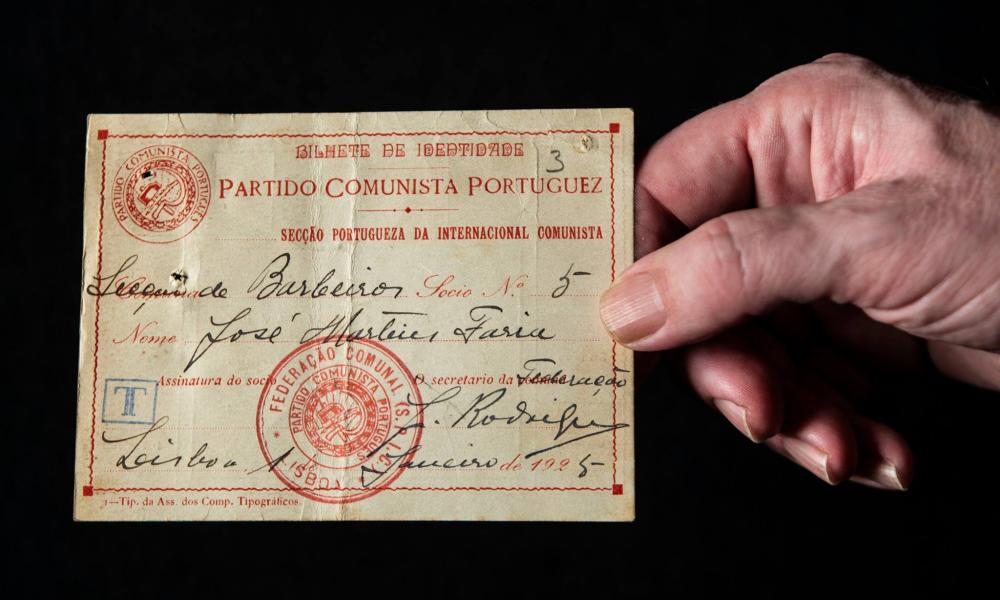 BILHETE DE IDENTIDADE
3
PARTIDO COMUNISTA PORTUGUÊS
PARTIDO COMUNISTA PORTUGUEZ
SECÇÃO PORTUGUEZA DA INTERNACIONAL COMUNISTA
Secção de Barbeiros Socio N.º 5
Nome José Martins Faria
Assinatura do socio O secretario da Federação
T
FEDERAÇÃO COMUNAL (S. P. I. C.)
PARTIDO COMUNISTA PORTUGUÊS
LISBOA
Rodrigues
Lisboa 1 Janeiro de 1925
1—Tip. da Ass. dos Comp. Tipográficos.